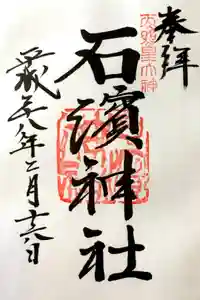 奉拝
天照皇大神
石濱神社
年二月十六日